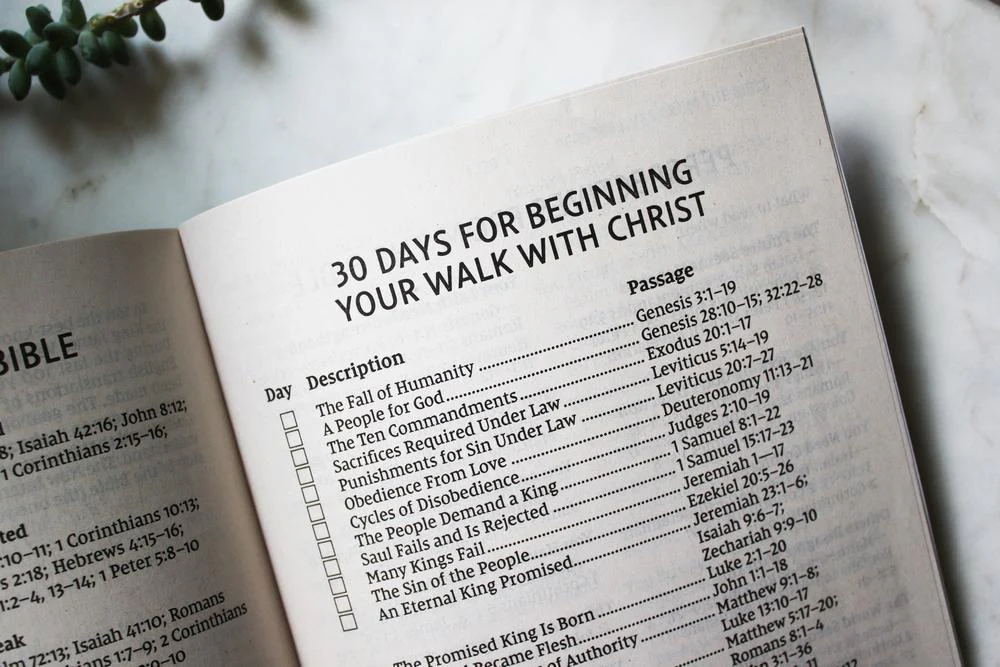 BIBLE
8; Isaiah 42:16; John 8:12;
1 Corinthians 2:15–16;
:10–11; 1 Corinthians 10:13;
s 2:18; Hebrews 4:15–16;
1:2–4, 13–14; 1 Peter 5:8–10
eak
m 72:13; Isaiah 41:10; Romans
ians 1:7–9; 2 Corinthians
30 DAYS FOR BEGINNING
YOUR WALK WITH CHRIST
Day Description Passage
The Fall of Humanity Genesis 3:1–19
A People for God Genesis 28:10–15; 32:22–28
The Ten Commandments Exodus 20:1–17
Sacrifices Required Under Law Leviticus 5:14–19
Punishments for Sin Under Law Leviticus 20:7–27
Obedience From Love Deuteronomy 11:13–21
Cycles of Disobedience Judges 2:10–19
The People Demand a King 1 Samuel 8:1–22
Saul Fails and Is Rejected 1 Samuel 15:17–23
Many Kings Fail Jeremiah 1–17
The Sin of the People Ezekiel 20:5–26
An Eternal King Promised Jeremiah 23:1–6;
Isaiah 9:6–7;
Zechariah 9:9–10
The Promised King Is Born Luke 2:1–20
Became Flesh John 1:1–18
of Authority Matthew 9:1–8;
Luke 13:10–17
Matthew 5:17–20;
Romans 8:1–4
3:1–36